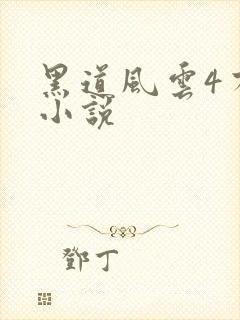 黑道風雲4
小說
鄧丁